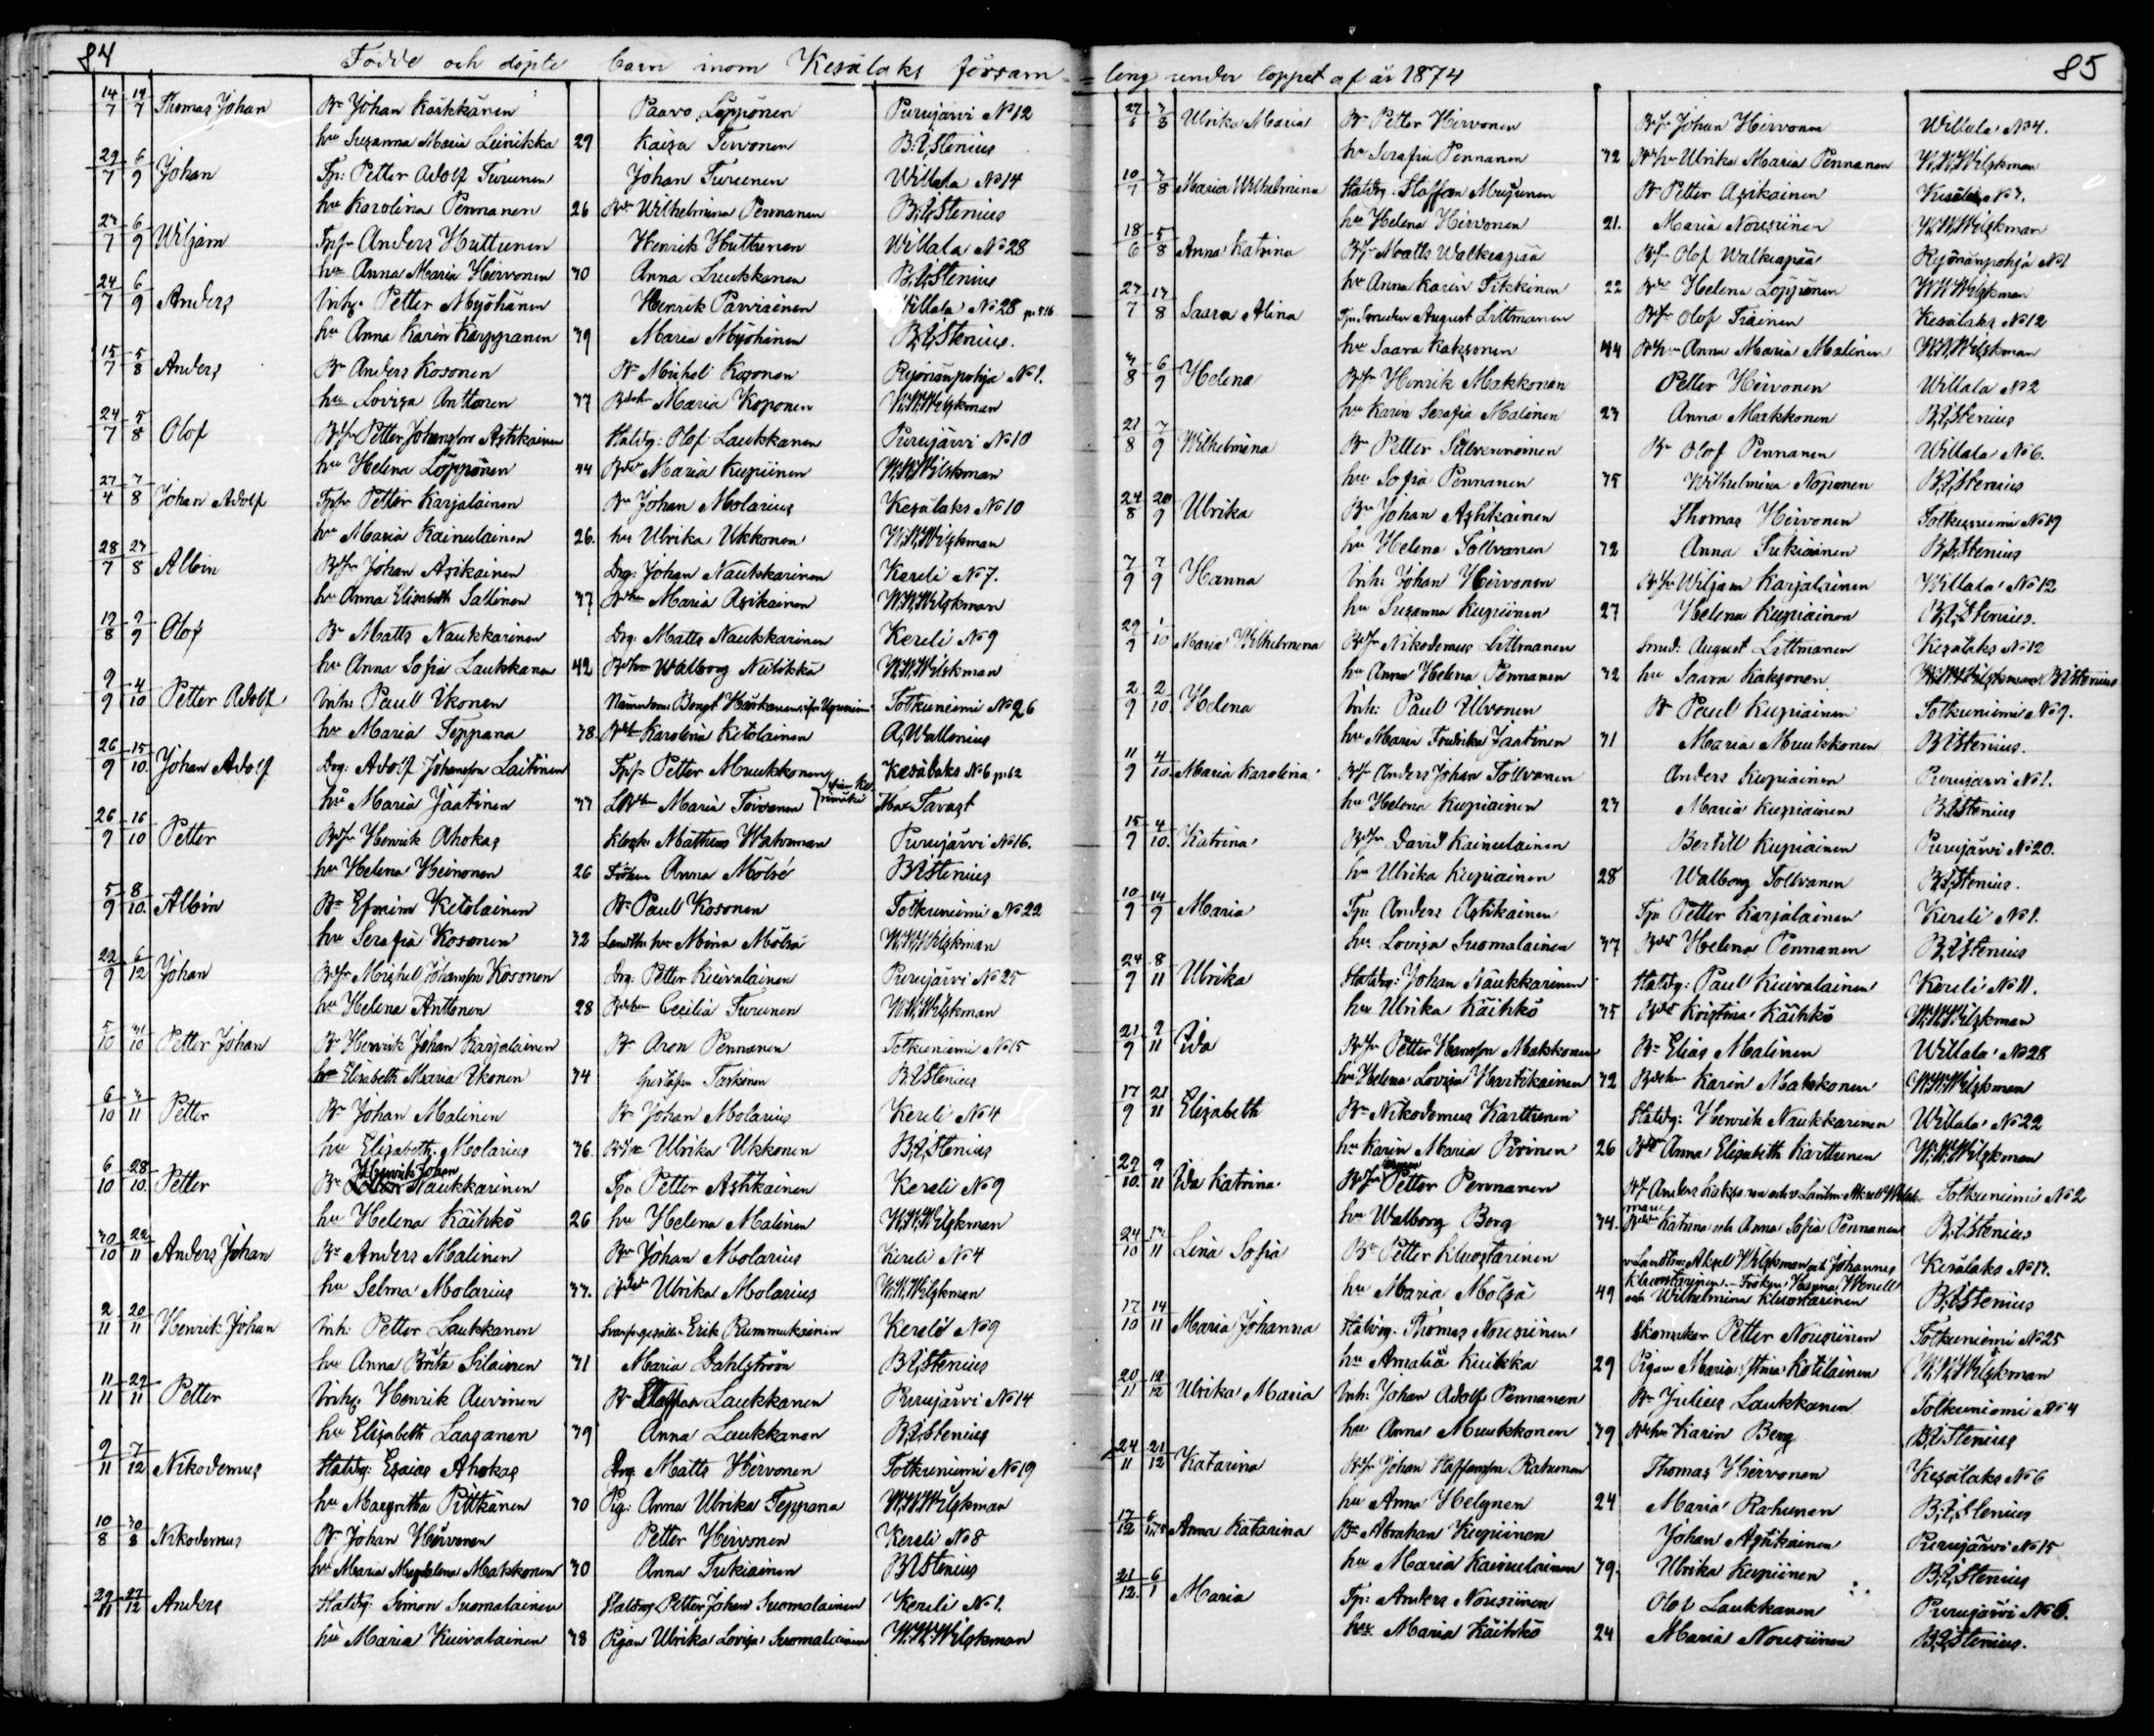 84
Födde och döpte barn inom Kesälaks försam
14/7 19/7 Thomas Johan Bn Johan Karkkänen Paavo Löppönen Purujärvi No 12
hu Susanna Maria Leinikka 29 Kaisa Toivonen B.I.Stenius
29/7 6/9 Johan Tp: Petter Adolf Turunen Johan Turunen Willala No 14
hu Karolina Pennanen 26 Wilhelmina Pennanen B.I.Stenius
27/7 6/9 Wiljam Anders Huttunen Henrik Huttunen Willala No 28
hu Anna Maria Hirvonen 30 Anna Luukkonen B.I.Stenius
24/7 6/9 Anders Inhs. Petter Myöhänen Henrik Parviainen Willala No 28
hu Anna Karin Karppanen 39 Maria Myöhänen B.I.Stenius.
15/7 5/8 Anders Bn Anders Kosonen Bn Mickel Kosonen Rejonänpohja No 1.
hu Lovisa Anttonen 37 Maria Koponen W.W.Wilskman
24/7 5/8 Olof Petter Johansson Asikainen Staldrg: Olof Laukkanen Purujärvi No 10
hu Helena Löppönen 44 Maria Kupiinen W.W.Wilskman
27/4 7/8 Johan Adolf Petter Karjalainen Bn Johan Molarius Kesälaks No 10
hu Maria Kainulainen 26. hu Ulrika Ukkonen W.W.Wilskman
28/7 23/8 Albin Johan Asikainen Drg: Johan Naukkarinen Kereli No 7.
hu Anna Elisabeth Sallinen 37 Maria Asikainen W.W.Wilskman
19/8 9/9 Olof Bn Matts Naukkarinen Drg: Matts Naukkarinen Kereli No 9
hu Anna Sofia Laukkanen 42 Walborg W.W.Wilskman
9/9 4/10 Petter Adolf Inhs Paul Ikonen Bengt Totkuniemi No 26
hu Maria Teppana 38 Karolina Kitolainen A.Wallenius
26/9 15/10 Johan Adolf Drg: Adolf Johansson Laitinen Petter Muukkonen Kesälaks No 6
hu Maria Jaatinen 37 Maria Toivonen Tavast
26/9 16/10 Petter Henrik Ahokas Mathias Purujärvi No 16.
hu Helena Heinonen 26 Anna B.I.Stenius
5/9 8/10 Albin Bn Efraim Kitolainen Bn Paul Kosonen Totkuniemi No 22
hu Serafia Kosonen 32 hu Mina W.W.Wilskman
22/9 6/12 Johan Mickel Johansson Kosonen Drg: Petter Kuivalainen Purujärvi No 25
hu Helena Anttonen 28 Cecilia Turunen W.W.Wilskman
5/10 Petter Johan Bn Henrik Johan Karjalainen Bn Aron Pennanen Totkuniemi No 15
hu Elisabeth Maria Ikonen 34 B.I.Stenius
6/10 Petter Bn Johan Malinen Bn Johan Molarius Kereli No 4
hu Elisabeth Molarius 36. Ulrika Ukkonen B.I.Stenius
6/10 28/10 Petter Bn Henrik Johan Naukkarinen Tp Petter Asikainen Kereli No 9
hu Helena Käihkö 26 hu Helena Malinen W.W.Wilskman
30/10 22/11 Anders Johan Bn Anders Malinen Bn Johan Molarius Kereli No 4
hu Selma Molarius 33. Ulrika Molarius W.W.Wilskman
2/11 20/11 Henrik Johan Inh: Petter Laukkanen Erik Rummukainen Kereli No 9
hu Anna Brita Silainen 31 Maria Dahlström B.I.Stenius
11/11 29/11 Petter Inhs: Henrik Auvinen Bn Staffan Laukkanen Purujärvi No 14
hu Elisabeth Laasanen 39 Anna Laukkanen B.I.Stenius
9/11 7/12 Nikodemus Staldrg: Esaias Ahokas Drg. Matts Hirvonen Totkuniemi No 19
hu Margretha Pitkänen 30 Pig: Anna Ulrika Teppana W.W.Wilskman
10/8 30/8 Nikodemus Bn Johan Hirvonen Petter Hirvonen Kereli No 8
hu Maria Magdalena Makkonen 30 Anna Tukiainen B.I.Stenius
29/11 27/12 Anders Staldrg: Simon Suomalainen Staldrg Petter Johan Suomalainen Kereli No 1.
hu Maria Kuivalainen 38 Pigan Ulrika Lovisa Suomalainen W.W.Wilskman
85
ling under loppet af år 1874
Ulrika Maria Bn Petter Hirvonen Johan Hirvonen Willala No 4.
hu Serafia Pennanen 32 Ulrika Maria Pennanen W.W.Wilskman
10/7 Maria Wilhelmina Staldrg. Staffan Mujunen Bn Petter Asikainen
hu Helena Hirvonen 21. Maria Nousiinen W.W.Wilskman
18/6 5/8 Anna Katrina Matts Walkeapää Olof Walkeapää Rejonänpohja No 1
hu Anna Karin Tikkinen 22 Helena Löppönen W.W.Wilskman
27/7 Saara Alina Smeden August Littmanen Olof Tiainen Kesälaks No 12
hu Saara Kaksonen 44 Anna Maria Malinen W.W.Wilskman
6/9 Helena Henrik Makkonen Petter Hirvonen Willala No 2
hu Karin Serafia Malinen 23 Anna Makkonen B.I.Stenius
21/8 7/9 Wilhelmina Bn Petter Silvennoinen Bn Olof Pennanen Willala No 6.
hu Sofia Pennanen 35 Wilhelmina Noponen B.I.Stenius
24/8 20/9 Ulrika Bn Johan Asikainen Thomas Hirvonen Totkuniemi No 19
hu Helena Tolvanen 32 Anna Tukiainen B.I.Stenius
7/9 7/9 Hanna Inh: Johan Hirvonen Wiljam Karjalainen Willala No 12
hu Susanna Kupiinen 27 Helena Kupiainen B.I.Stenius.
29/9 1/10 Maria Wilhelmina Nikodemus Littmanen Smed: August Littmanen Kesälaks No 12
hu Anna Helena Pennanen 32 hu Saara Kaksonen W.W.Wilskman B.I.Stenius
2/9 2/10 Helena Inh: Paul Ilvonen Bn Paul Kupiainen Totkuniemi No 9.
hu Maria Fredrika Jaatinen 31 Maria Muukkonen B.I.Stenius.
11/9 4/10 Maria Karolina Anders Johan Tolvanen Anders Kupiainen Purujärvi No 1.
hu Helena Kupiainen 23 Maria Kupiainen B.I.Stenius
15/9 4/10 Katrina David Kainulainen Bertill Kupiainen Purujärvi No 20.
hu Ulrika Kupiainen 28 Walborg Tolvanen B.I.Stenius.
10/9 14/9 Maria Tp: Anders Asikainen Tp: Petter Karjalainen Kereli No 1.
hu Lovisa Suomalainen 37 Helena Pennanen B.I.Stenius
24/9 8/11 Ulrika Staldrg: Johan Naukkarinen Staldrg: Paul Kuivalainen Kereli No 11.
hu Ulrika Käihkö 35 Kristina Käihkö W.W.Wilskman
21/9 9/11 Ida Petter Hansson Makkonen Bn Elias Malinen Willala No 28
hu Helena Lovisa Hartikainen 32 Karin Makkonen W.W.Wilskman
17/9 21/11 Elisabeth Bn Nikodemus Karttunen Staldrg: Henrik Naukkarinen Willala No 22
hu Karin Maria Pirinen 26 Anna Elisabeth Karttunen W.W.Wilskman
29/10 9/11 Ida Katrina Petter Pennanen Anders Totkuniemi No 2
hu Walborg Berg 34. Katrina och Anna Sofia Pennanen B.I.Stenius
24/10 Lena Sofia Bn Petter Kluostarinen Aksel Wilskman och Johannes Kesälaks
hu Maria Mölsä 49 Kluostarinen. Fröken Hanna och Wilhelmina Kluostarinen B.I.Stenius
17/10 14/11 Maria Johanna Staldrg. Thomas Nousiinen Skomakar Petter Nousiinen Totkuniemi No 25
hu Amalia Kuikka 29 Pigan Maria Stina Kotilainen W.W.Wilskman
20/11 12/12 Ulrika Maria Inh: Johan Adolf Pennanen Bn Julius Laukkanen Totkuniemi No 4
hu Anna Muukkonen 39 Karin Berg B.I.Stenius
24/11 21/12 Katarina Johan Staffansson Rahunen Thomas Hirvonen Kesälaks No 6
hu Anna Helynen 24 Maria Rahunen B.I.Stenius
17/12 Anna Katarina Bn Abraham Kupiinen Johan Asikainen Purujärvi No 15
hu Maria Kainulainen 39. Ulrika Kupiinen B.I.Stenius
21/12 6/1 Maria Tp: Anders Nousiinen Olof Laukkanen Purujärvi No 6.
hu Maria Käihkö 24 Maria Nousiinen B.I.Stenius.